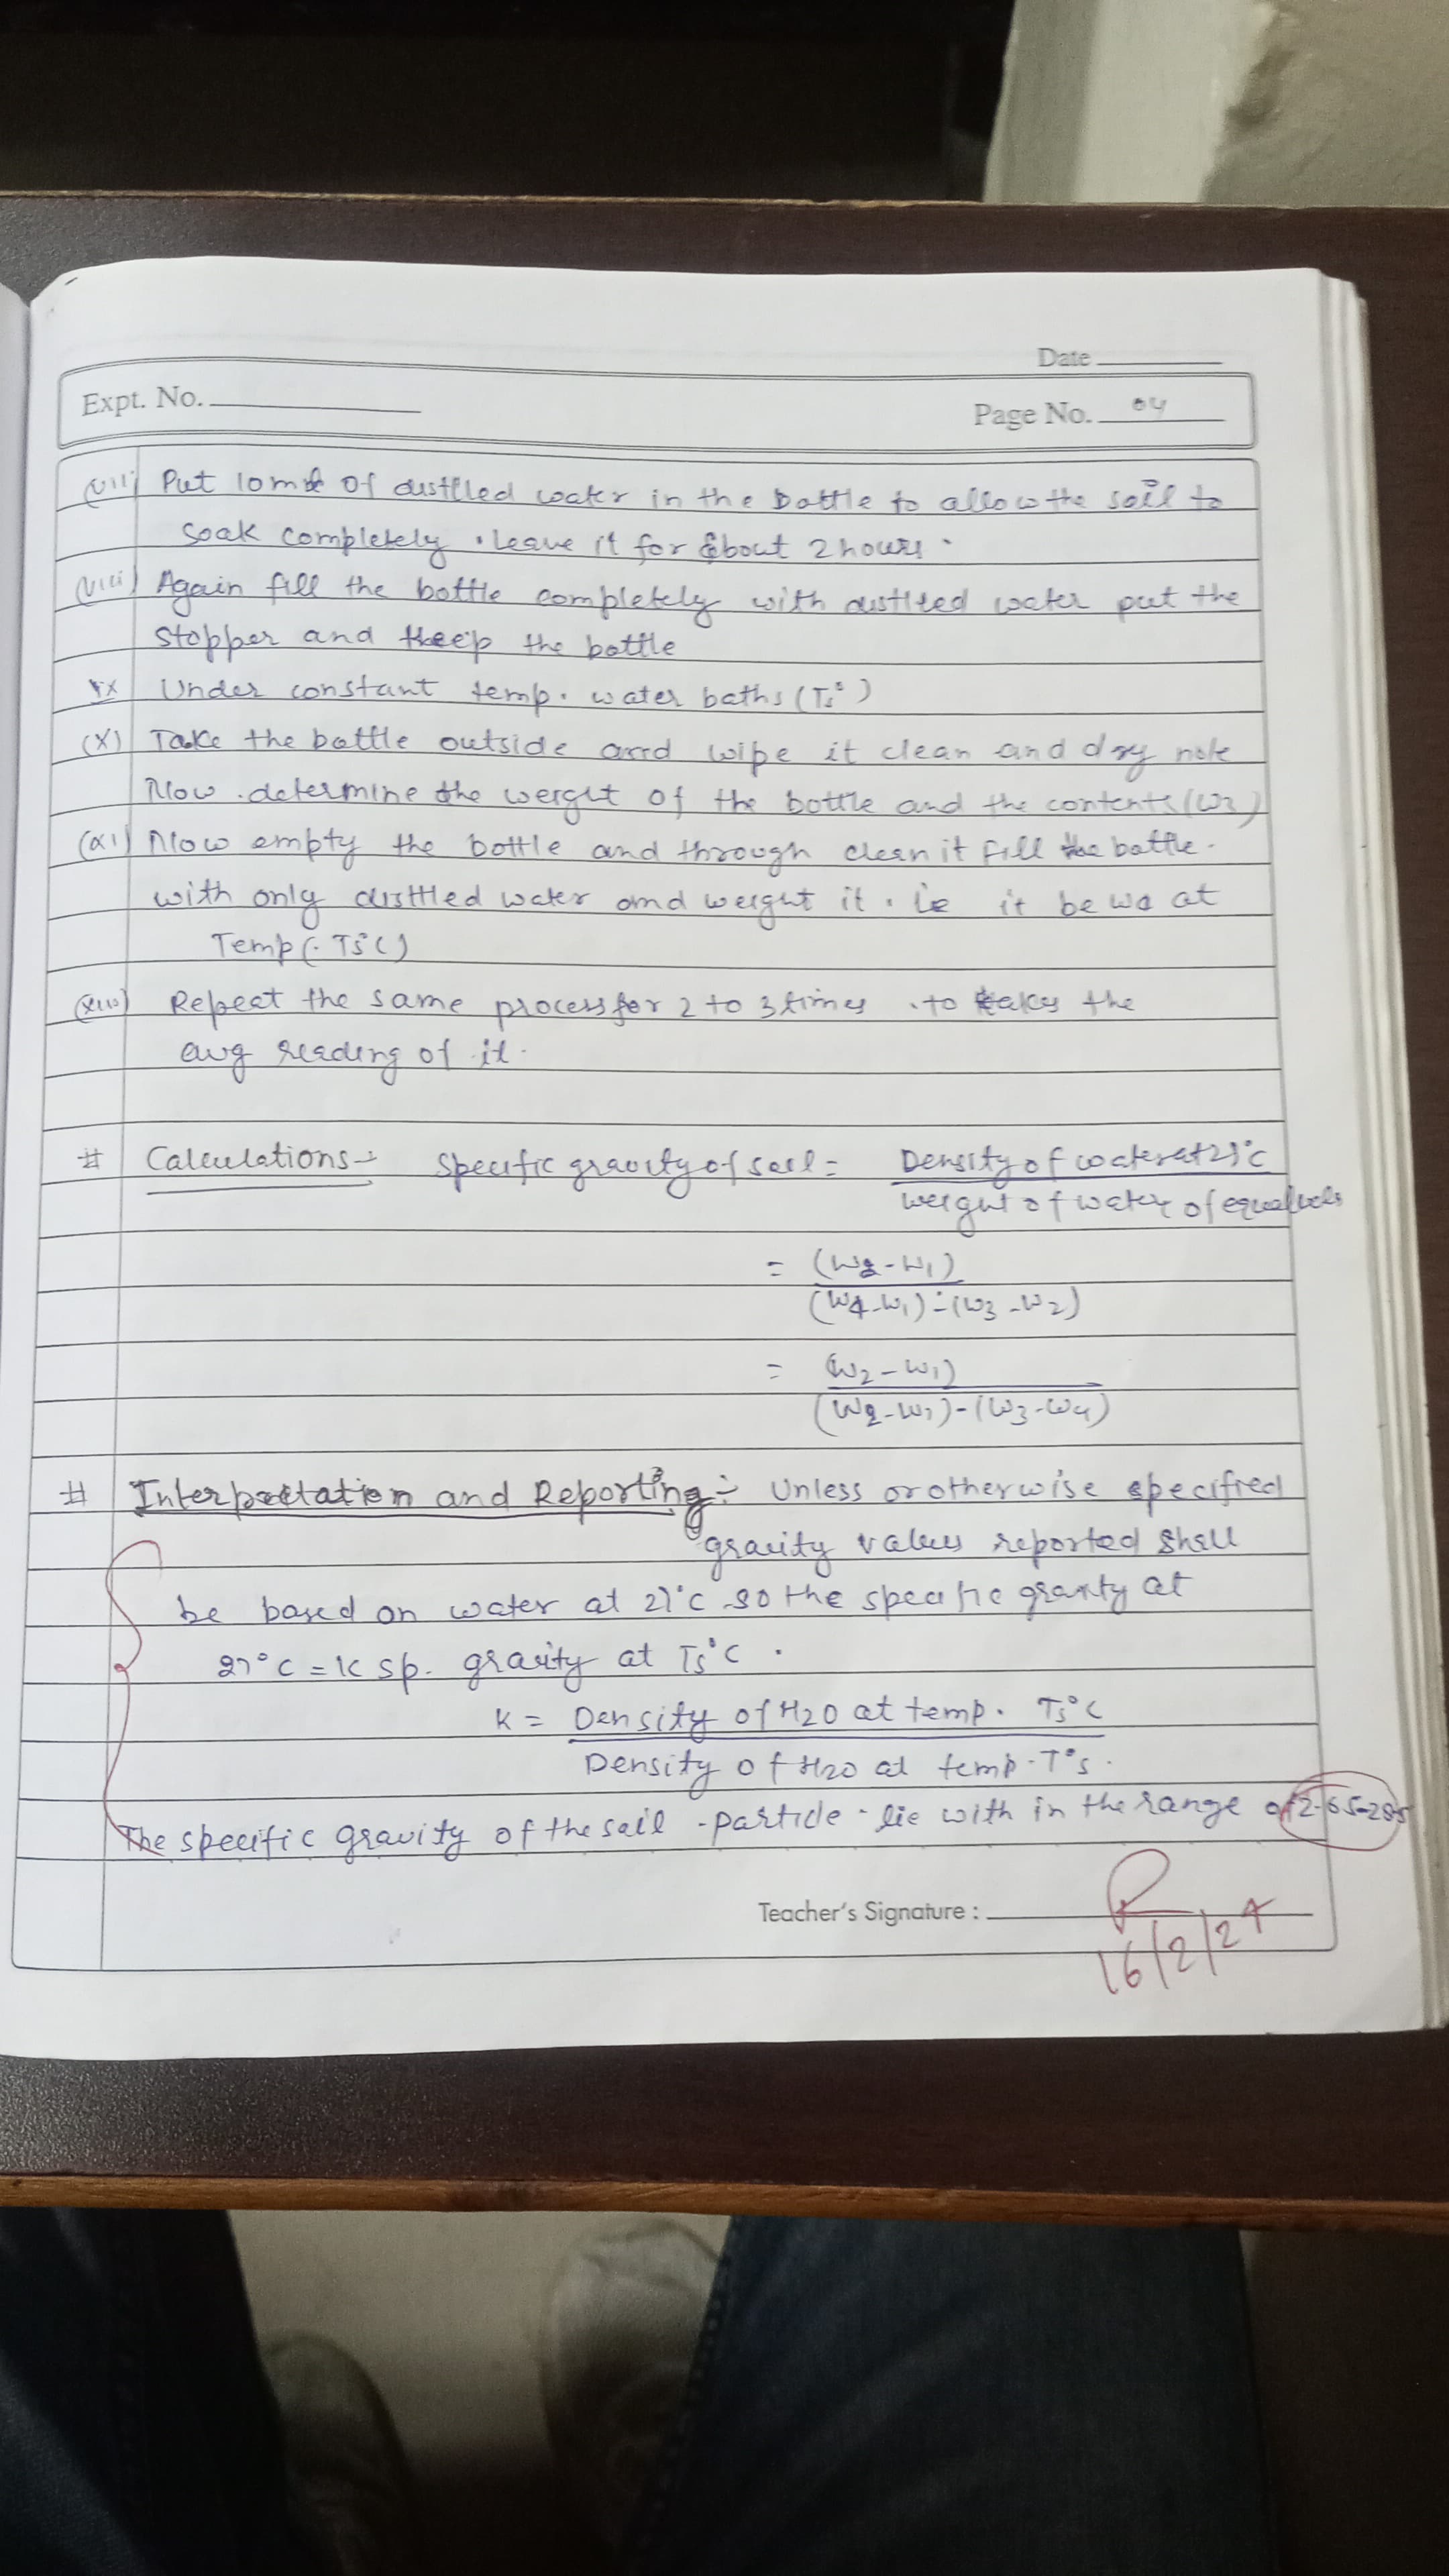 Date
Expt. No.
Page No. 04
(vii) Put 10ml of distlled water in the bottle to allow the soil to
soak completely . leave it for about 2 hours .
(viii) Again fill the bottle completely with distlled water put the
stopper and keep the bottle
ix Under constant temp. water baths (Ts°)
(X) Take the bottle outside and wipe it clean and dry note
Now . determine the weight of the bottle and the contents (W3)
(xi) Now empty the bottle and through clean it fill the bottle .
with only distlled water and weight it . ie it be at
Temp (. Ts°C)
Repeat the same process for 2 to 3 times . to takes the
avg reading of it .
# Calculations → Specific gravity of soil = Density of water at 27°C
weight of water of equal
= (W2 - W1)
(W4-W1) - (W3 -W2)
= (W2 - W1)
(W2-W1) - (W3-W4)
# Interpretation and Reporting ÷ Unless or otherwise specified
gravity values reported shall
be based on water at 27°C so the specific gravity at
27°C = K sp. gravity at Ts°C .
K = Density of H2O at temp. Ts°C
Density of H2O at temp. T°s .
The specific gravity of the soil - particle - lie with in the range of 2.65-2.85
Teacher's Signature :
16/2/24